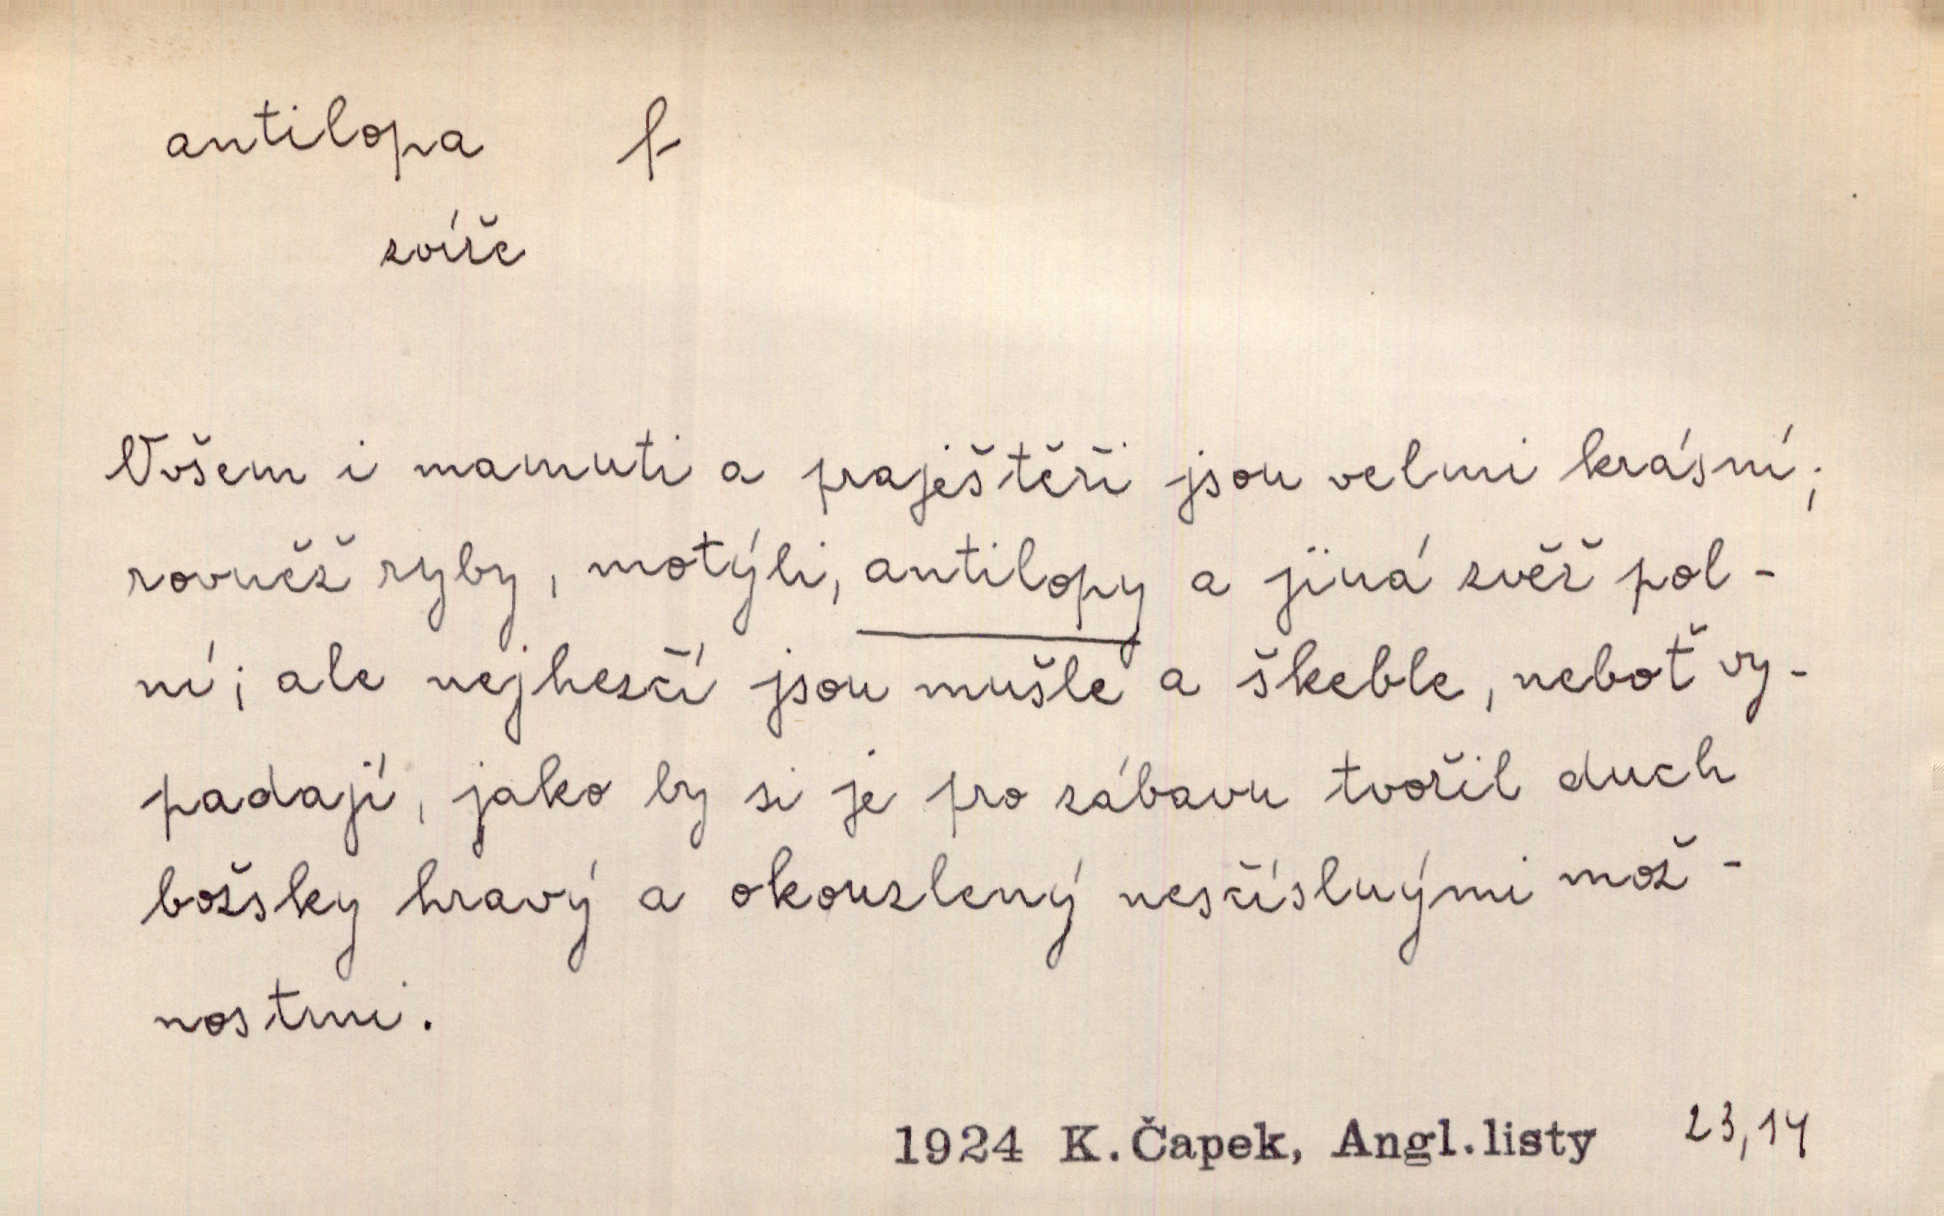 antilopa f
zvíře
Ovšem i mamuti a praještěři jsou velmi krásní;
rovněž ryby, motýli, antilopy a jiná zvěř pol-
ní; ale nejhezčí jsou mušle a škeble, neboť vy-
padají, jako by si je pro zábavu tvořil duch
božsky hravý a okouzlený nesčíslnými mož-
nostmi.
1924 K. Čapek, Angl. listy 23,14